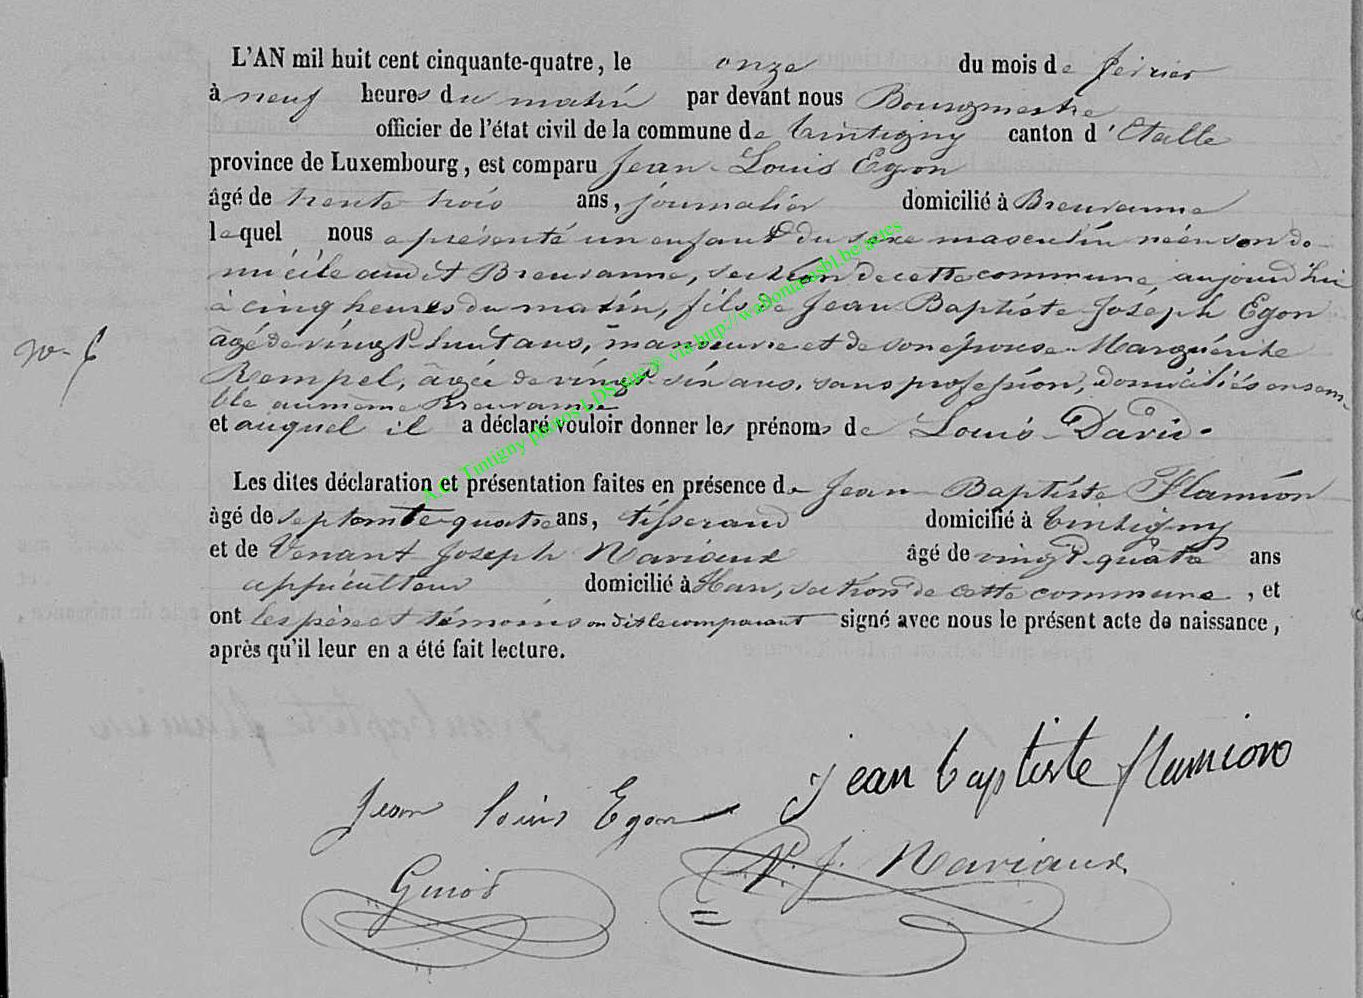 L'AN mil huit cent cinquante-quatre, le onze du mois de février
à neuf heures du matin par devant nous Bourgmestre
officier de l'état civil de la commune de Tintigny canton d'Etalle
province de Luxembourg, est comparu Jean Louis Egon
âgé de trente trois ans, journalier domicilié à Breuvanne
lequel nous a présenté un enfant du sexe masculin né en son do-
micile audit Breuvanne, section de cette commune, aujourd'hui
à cinq heures du matin, fils de Jean Baptiste Joseph Egon
âgé de vingt huit ans, manoeuvre et de son épouse Marguérite
Rempel, âgée de vingt six ans, sans profession, domiciliés ensem-
ble au même Breuvanne
et auquel il a déclaré vouloir donner les prénoms de Louis David.
N° 6
Les dites déclaration et présentation faites en présence de Jean Baptiste Flamion
âgé de septante quatre ans, tisserand domicilié à Tintigny
et de Venant Joseph Nariaux âgé de vingt quatre ans
domicilié à Han, section de cette commune, et
ont les père et témoins on dit le comparant signé avec nous le présent acte de naissance,
après qu'il leur en a été fait lecture.
Jean Baptiste flamion
Jean louis Egon
V. J. Nariaux
Guiot
A.C. Tintigny photos LDS site © via http://wallonia-asbl.be/actes